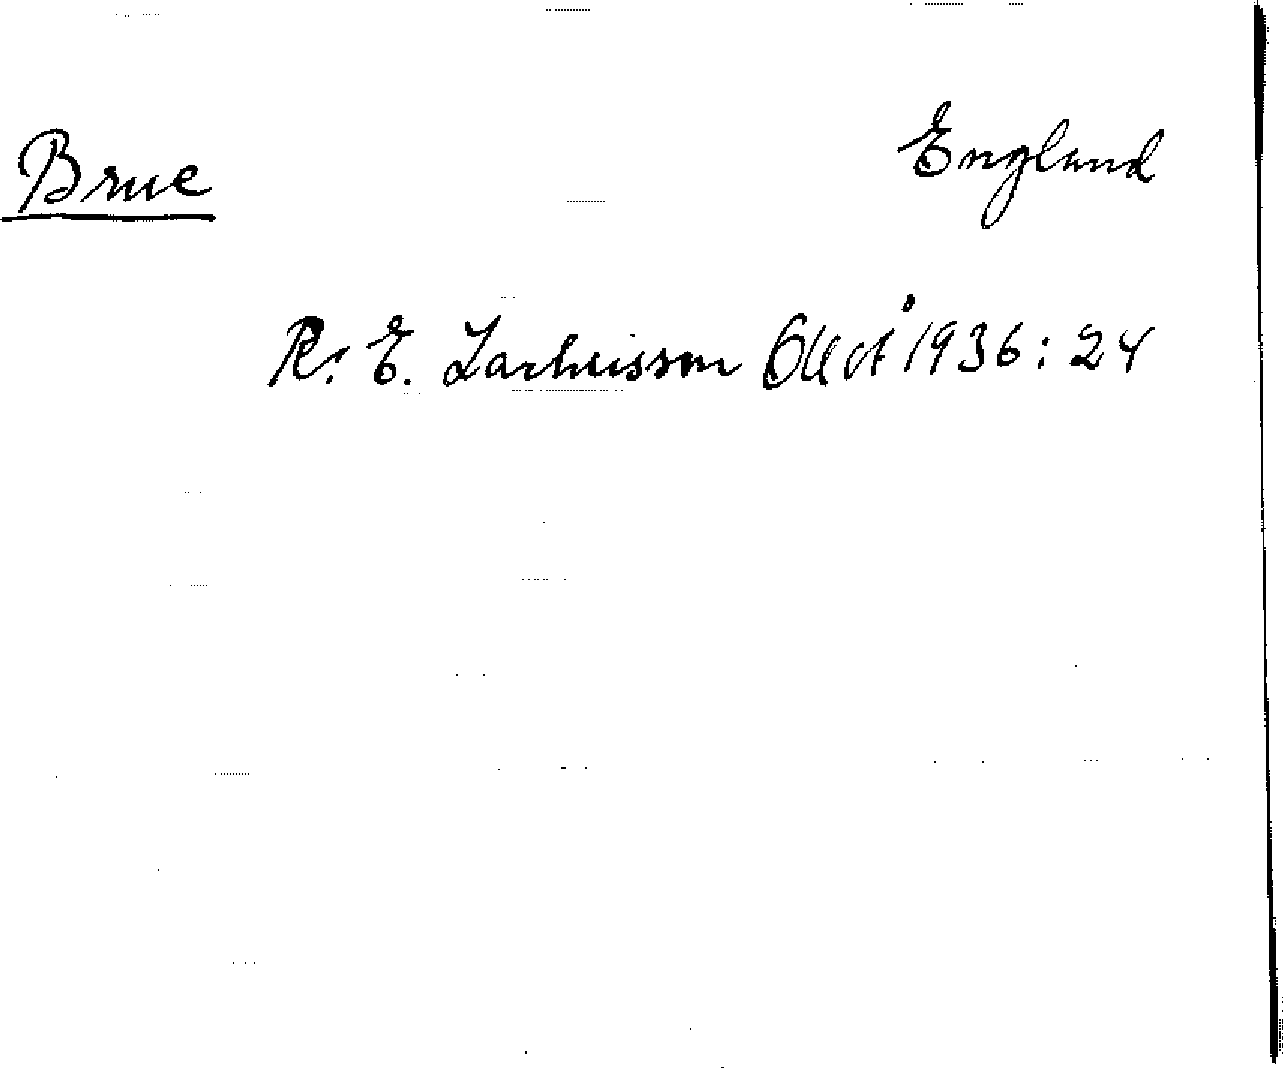 Brue England
R. E. Zachrisson 1936: 24